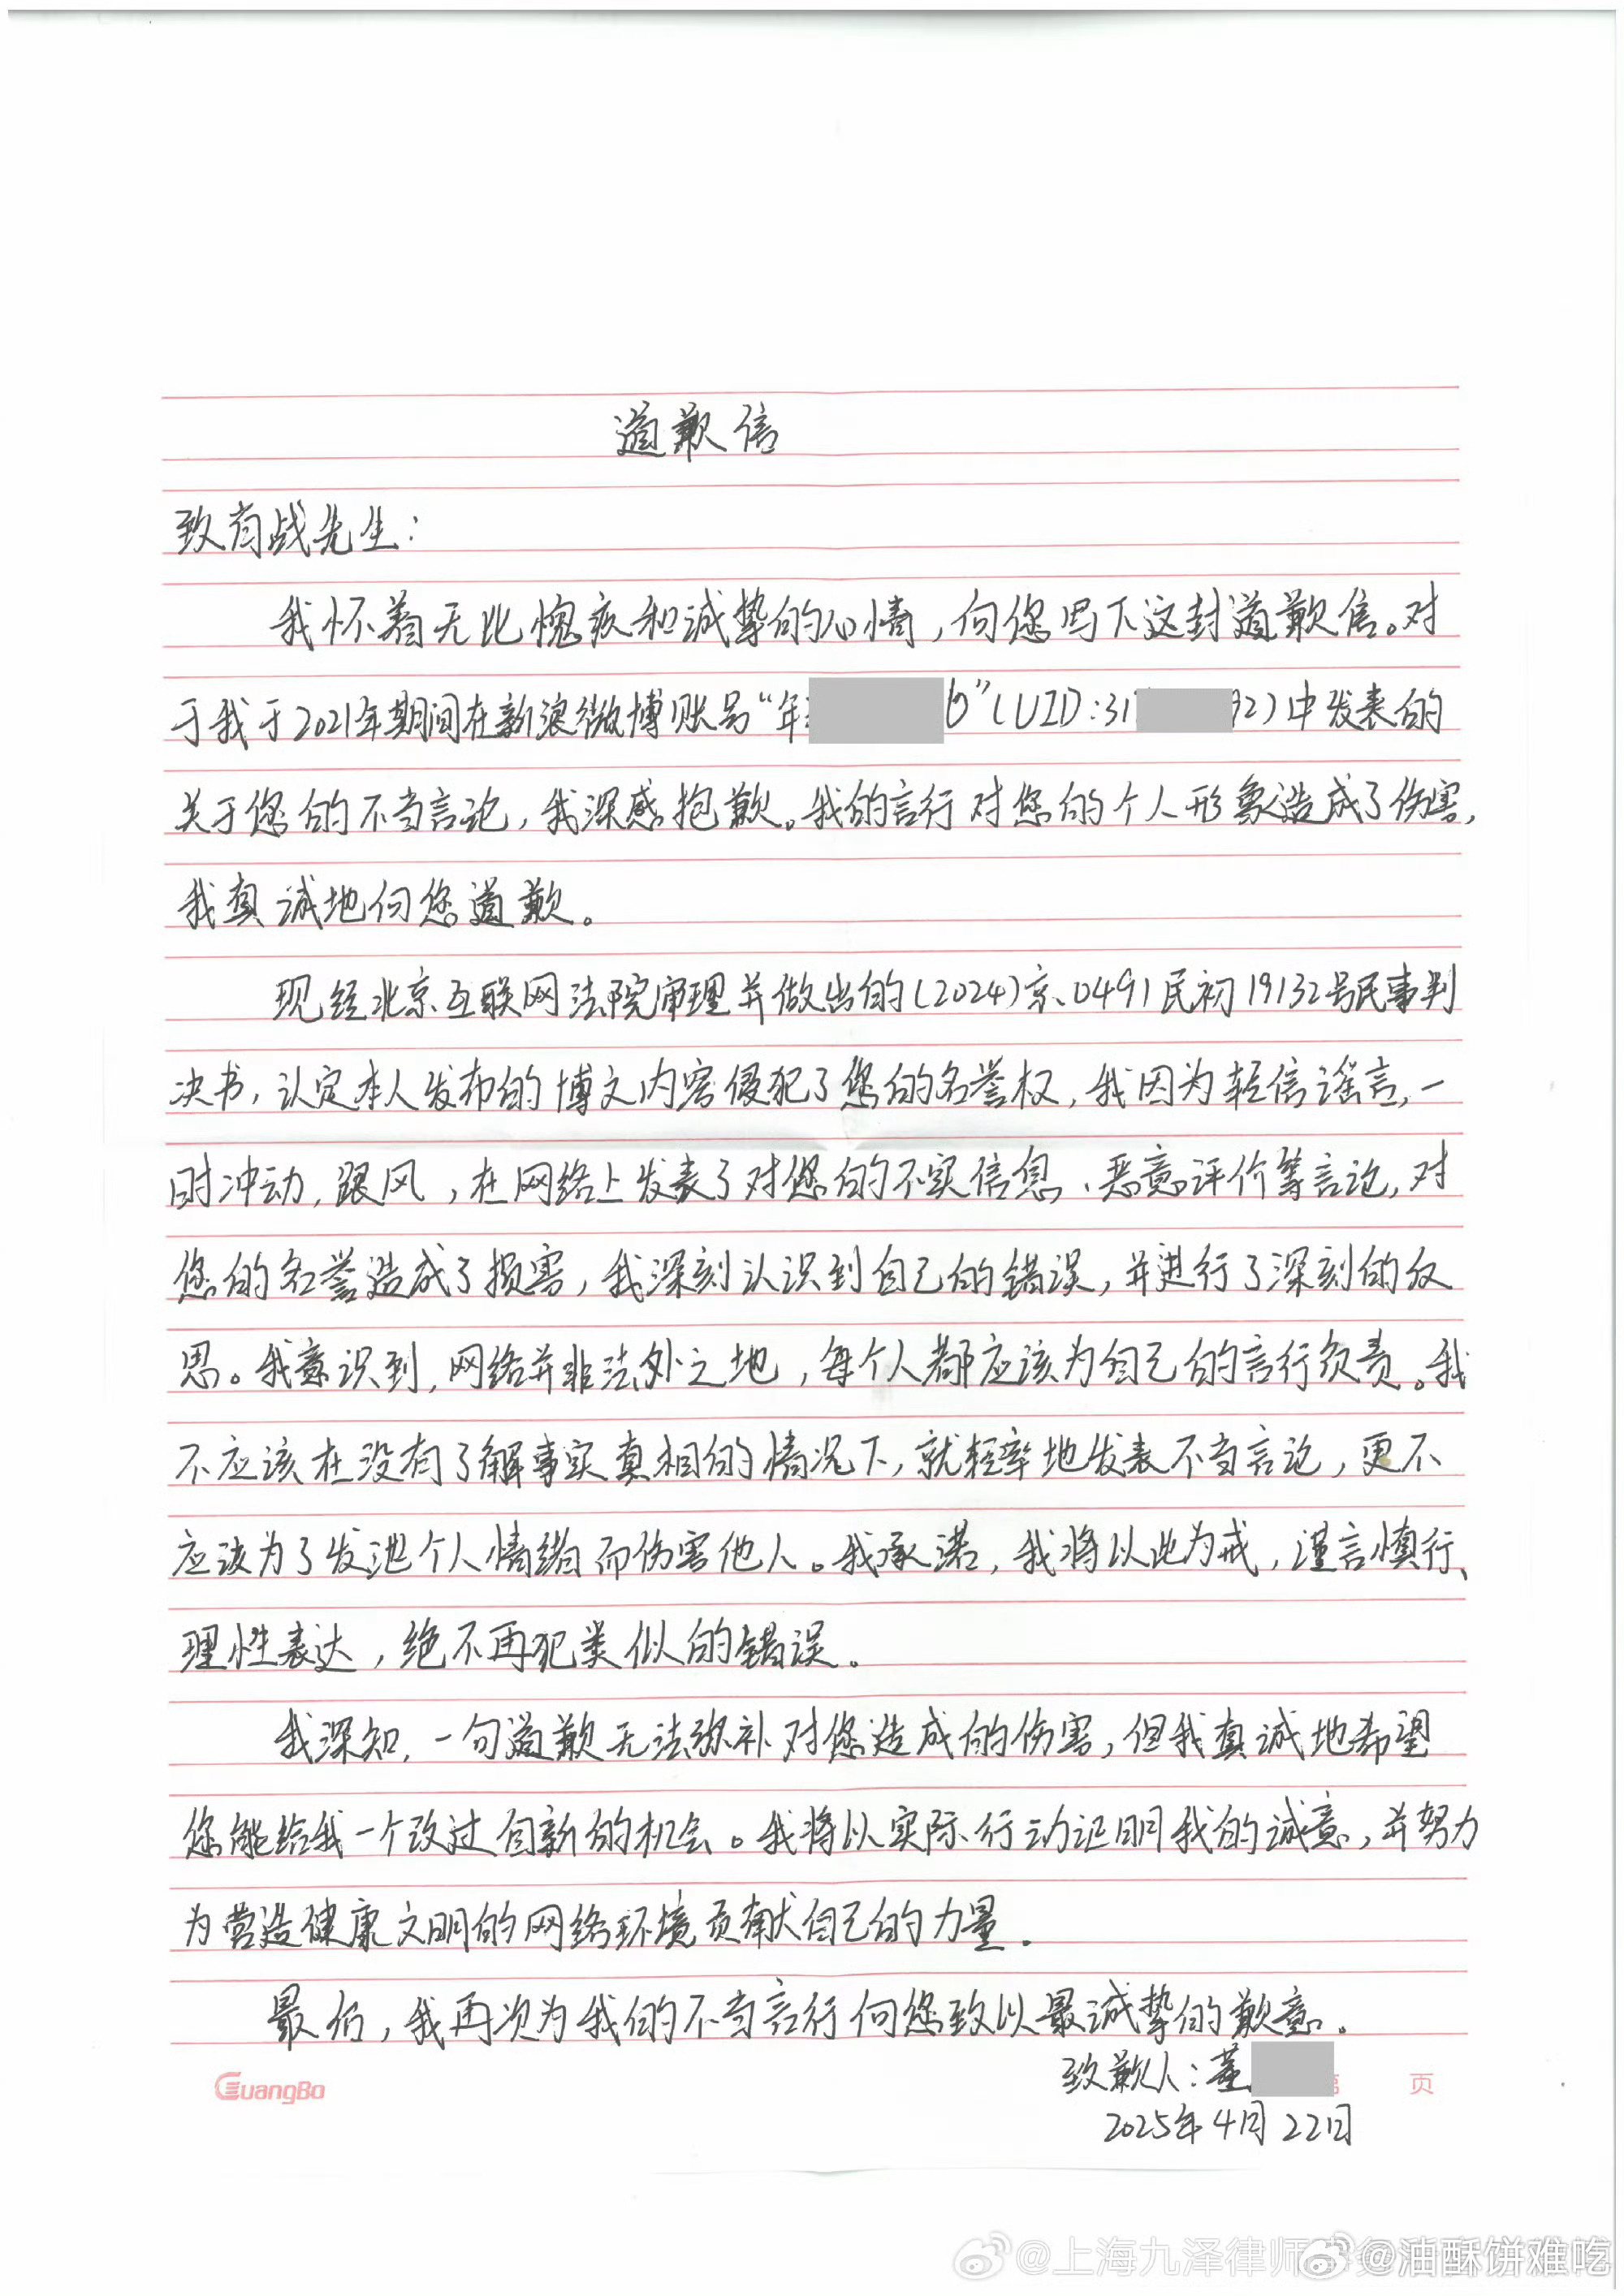 道歉信
致肖战先生：
我怀着无比愧疚和诚挚的心情，向您写下这封道歉信。对
于我于2021年期间在新浪微博账号“年 b”(UID:31 92)中发表的
关于您的不当言论，我深感抱歉。我的言行对您的个人形象造成了伤害，
我真诚地向您道歉。
现经北京互联网法院审理并做出的(2024)京0491民初19132号民事判
决书，认定本人发布的博文内容侵犯了您的名誉权，我因为轻信谣言，一
时冲动，跟风，在网络上发表了对您的不实信息、恶意评价等言论，对
您的名誉造成了损害，我深刻认识到自己的错误，并进行了深刻的反
思。我意识到，网络并非法外之地，每个人都应该为自己的言行负责。我
不应该在没有了解事实真相的情况下，就轻率地发表不当言论，更不
应该为了发泄个人情绪而伤害他人。我承诺，我将以此为戒，谨言慎行、
理性表达，绝不再犯类似的错误。
我深知，一句道歉无法弥补对您造成的伤害，但我真诚地希望
您能给我一个改过自新的机会。我将以实际行动证明我的诚意，并努力
为营造健康文明的网络环境贡献自己的力量。
最后，我再次为我的不当言行向您致以最诚挚的歉意。
致歉人：董
GuangBo 页
2025年4月22日
@上海九泽律师 @油酥饼难吃